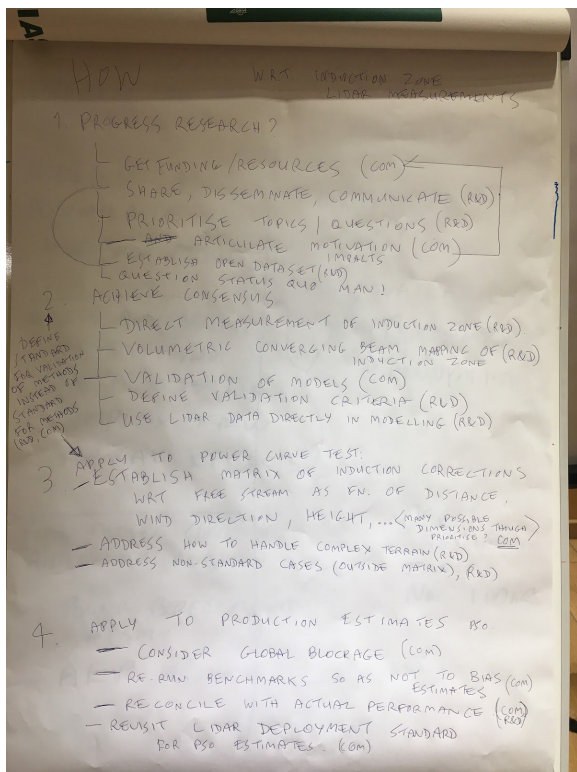 HOW
WRT INDUCTION ZONE
LIDAR MEASUREMENTS
1 PROGRESS RESEARCH?
GET FUNDING/RESOURCES (COM)
SHARE, DISSEMINATE, COMMUNICATE (R&D)
PRIORITISE TOPICS / QUESTIONS (R&D)
— AND ARTICULATE MOTIVATION (COM)
IMPACTS
ESTABLISH OPEN DATASET (R&D)
QUESTION STATUS QUO MAN!
2 ACHIEVE CONSENSUS
DIRECT MEASUREMENT OF INDUCTION ZONE (R&D)
VOLUMETRIC CONVERGING BEAM MAPPING OF (R&D)
INDUCTION ZONE
VALIDATION OF MODELS (COM)
DEFINE VALIDATION CRITERIA (R&D)
USE LIDAR DATA DIRECTLY IN MODELLING (R&D)
DEFINE
STANDARD
FOR VALIDATION
OF METHODS
INSTEAD OF
STANDARD
FOR METHODS
(R&D, COM)
3 APPLY TO POWER CURVE TEST:
— ESTABLISH MATRIX OF INDUCTION CORRECTIONS
WRT FREE STREAM AS FN. OF DISTANCE,
WIND DIRECTION, HEIGHT, ... <MANY POSSIBLE
DIMENSIONS THOUGH
PRIORITISE? COM>
— ADDRESS HOW TO HANDLE COMPLEX TERRAIN (R&D)
— ADDRESS NON-STANDARD CASES (OUTSIDE MATRIX), R&D)
4. APPLY TO PRODUCTION ESTIMATES P50
— CONSIDER GLOBAL BLOCKAGE (COM)
— RE-RUN BENCHMARKS SO AS NOT TO BIAS (COM)
ESTIMATES
— RECONCILE WITH ACTUAL PERFORMANCE (COM,
R&D)
— REVISIT LIDAR DEPLOYMENT STANDARD
FOR P50 ESTIMATES. (COM)